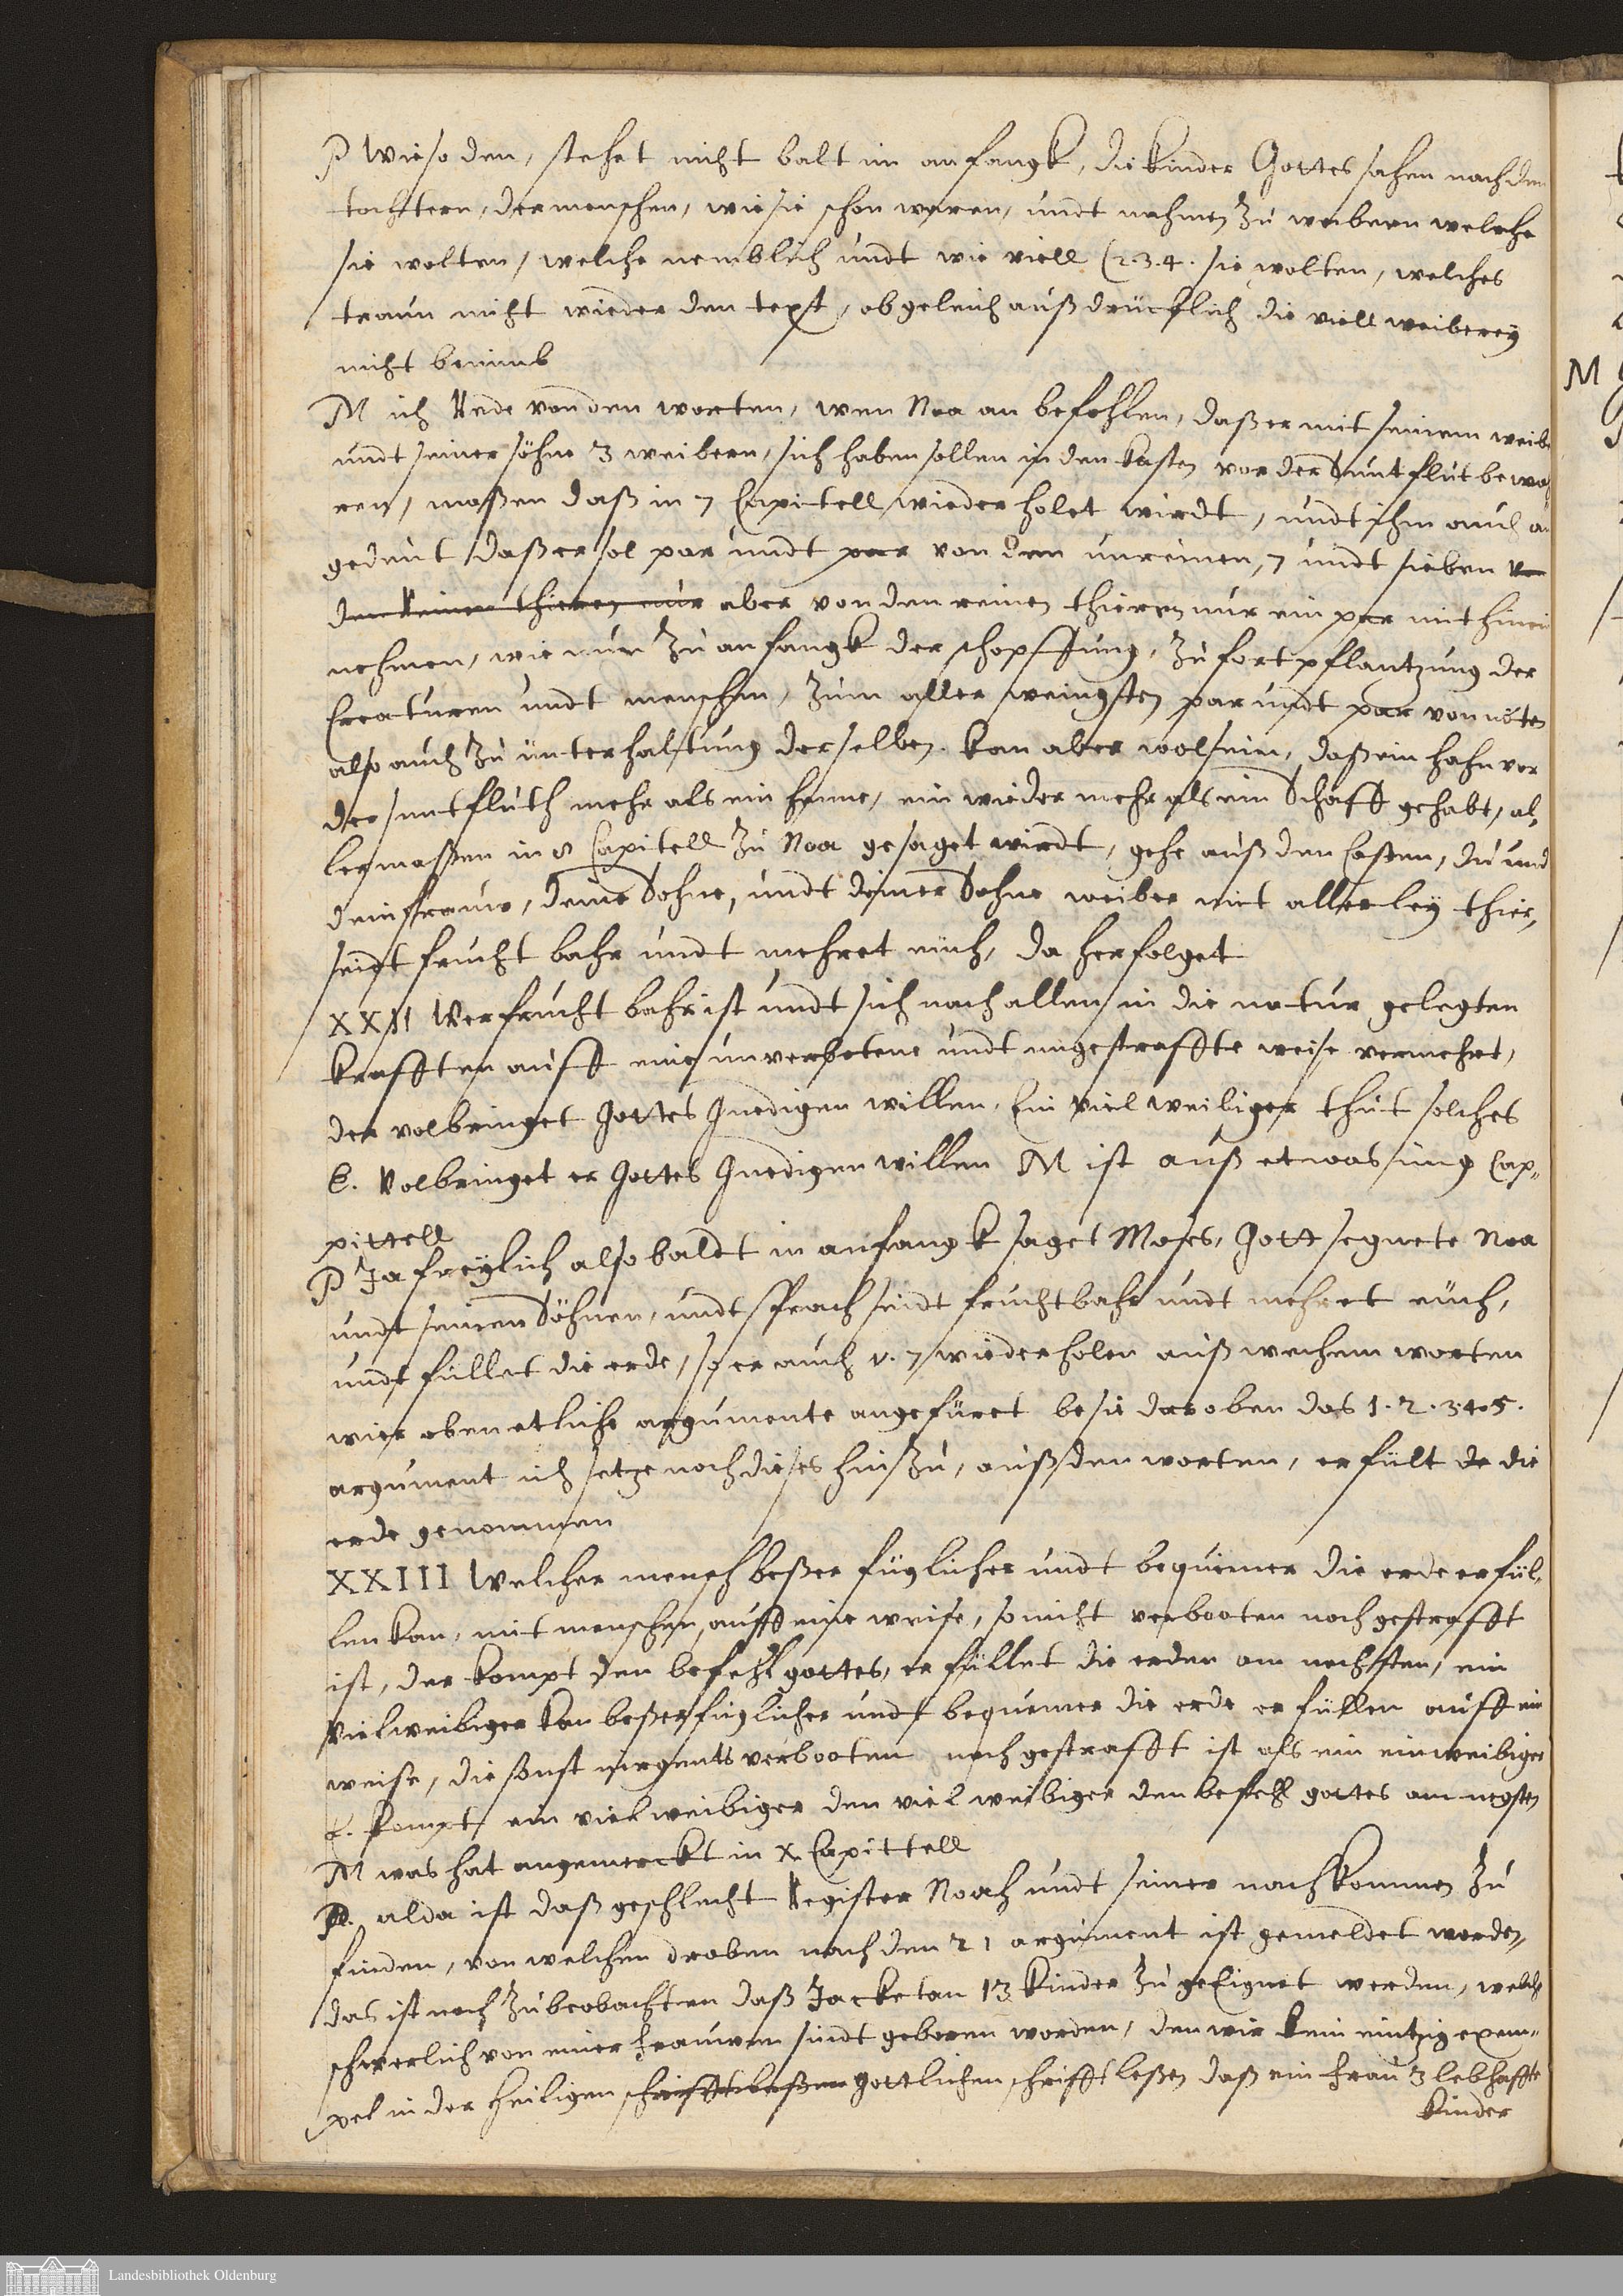 P Wie so den, stehet nicht balt im anfangk, die kinder Gottes sahen nach den
tochtern, der menschen, wie sie schon waren, undt nahmen zu weibern welche
sie wolten, welche nemblich undt wie viell (2.3.4. sie wolten, welches
traun nicht wieder den text, ob geleich außdrücklich die viell weiberey
nicht benimb
M ich Rede von den worten, wen Noa an befohlen, daß er mit seinem weibe
undt seiner söhne 3 weibern, sich haben sollen in den kasten vor der Suntflut bewa
ren, maßen daß in 7 Capitell wieder holet wirdt, undt ihm auch an
gedeut daß er sol par undt par von den unreinen, 7 undt sieben
den Reinen thieren nur aber von den reinen thieren nur ein par mit hinein
nehmen, wie nun zu anfangk der schopffung, zu fortpflantzung der
Creaturen undt menschen, zum aller weingsten par undt par von nöten
also auch zu unterhaltung derselben. kan aber wol sein, daß ein hahn vor
der suntfluth mehr als ein henne, ein wieder mehr als ein Schaff gehabt, al,
ler maßen in 8 Capitell zu Noa gesaget wirdt, gehe auß den Casten, du und
dein frauw, deine Sohne, undt deiner Sohne weiber mit allerley thier,
seidt frucht bahr undt mehret euch, da her folget
XXII Wer frucht bahr ist undt sich nach allen in die natur gelegten
krafften auff eine unverbotene undt ungestraffte weise vermehrt,
der volbringet Gottes Gnedigen willen. Ein viel weibiger thut solches
E. Volbringet er Gottes Gnedigen willen M ist auß etwas im 9 Cap,
pittell
P Ja freylich also baldt in anfangk saget Moses, Gott segnete Noa
undt seinen Söhnen, undt sprach seidt fruchtbahr undt mehret euch,
undt füllet die erde, so er auch v. 7 wiederholen auß wechem worten
wier oben etliche argumente angefüret besie daroben das 1. 2. 3. 4. 5.
argument ich setze noch dieses hin zu, auß den worten, er fült de die
erde genommen
XXIII Welcher mensch beßer füglicher undt bequemer die erde erfül,
len kan, mit menschen, auff eine weise, so nicht verbooten noch gestrafft
ist, der kompt den befehl gottes, er füllet die erden am nechsten, ein
Vielweibiger kan beßer füglicher undt bequemer die erde er füllen auff ein
weise, die sonst nirgents verbooten noch gestrafft ist als ein einweibiger
E. kompt ein vielweibiger den viel weibiger den befehl gottes am negsten
M was hat angemerckt in X Capittell
P. alda ist daß geschlecht Register Noah undt seiner nachkommen zu
finden, von welchen droben nach den 21 argument ist gemeldet worden,
das ist noch zu beobachten daß Jacketan 13 kinder zu geEignet werden, welche
schwerlich von einer frauwen sindt geboren worden, den wir kein eintzig exem,
pel in der heiligen schrifft leßen gottlichen schrifft leßen daß ein frau 13 lebhaffte
kinder
M
Landesbibliothek Oldenburg